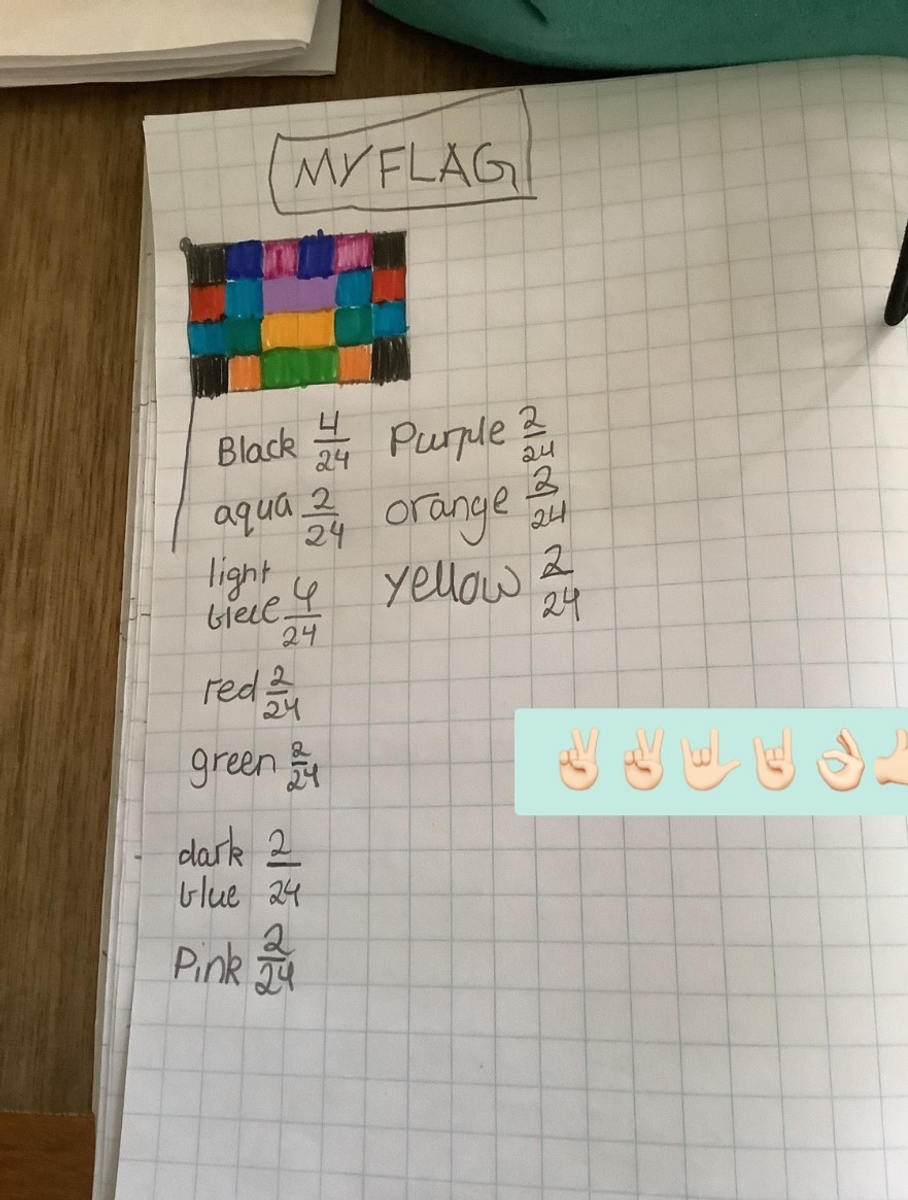 MY FLAG
Black 4/24
aqua 2/24
light
blue 4/24
red 2/24
green 2/24
dark 2/24
blue
Pink 2/24
Purple 2/24
orange 2/24
yellow 2/24